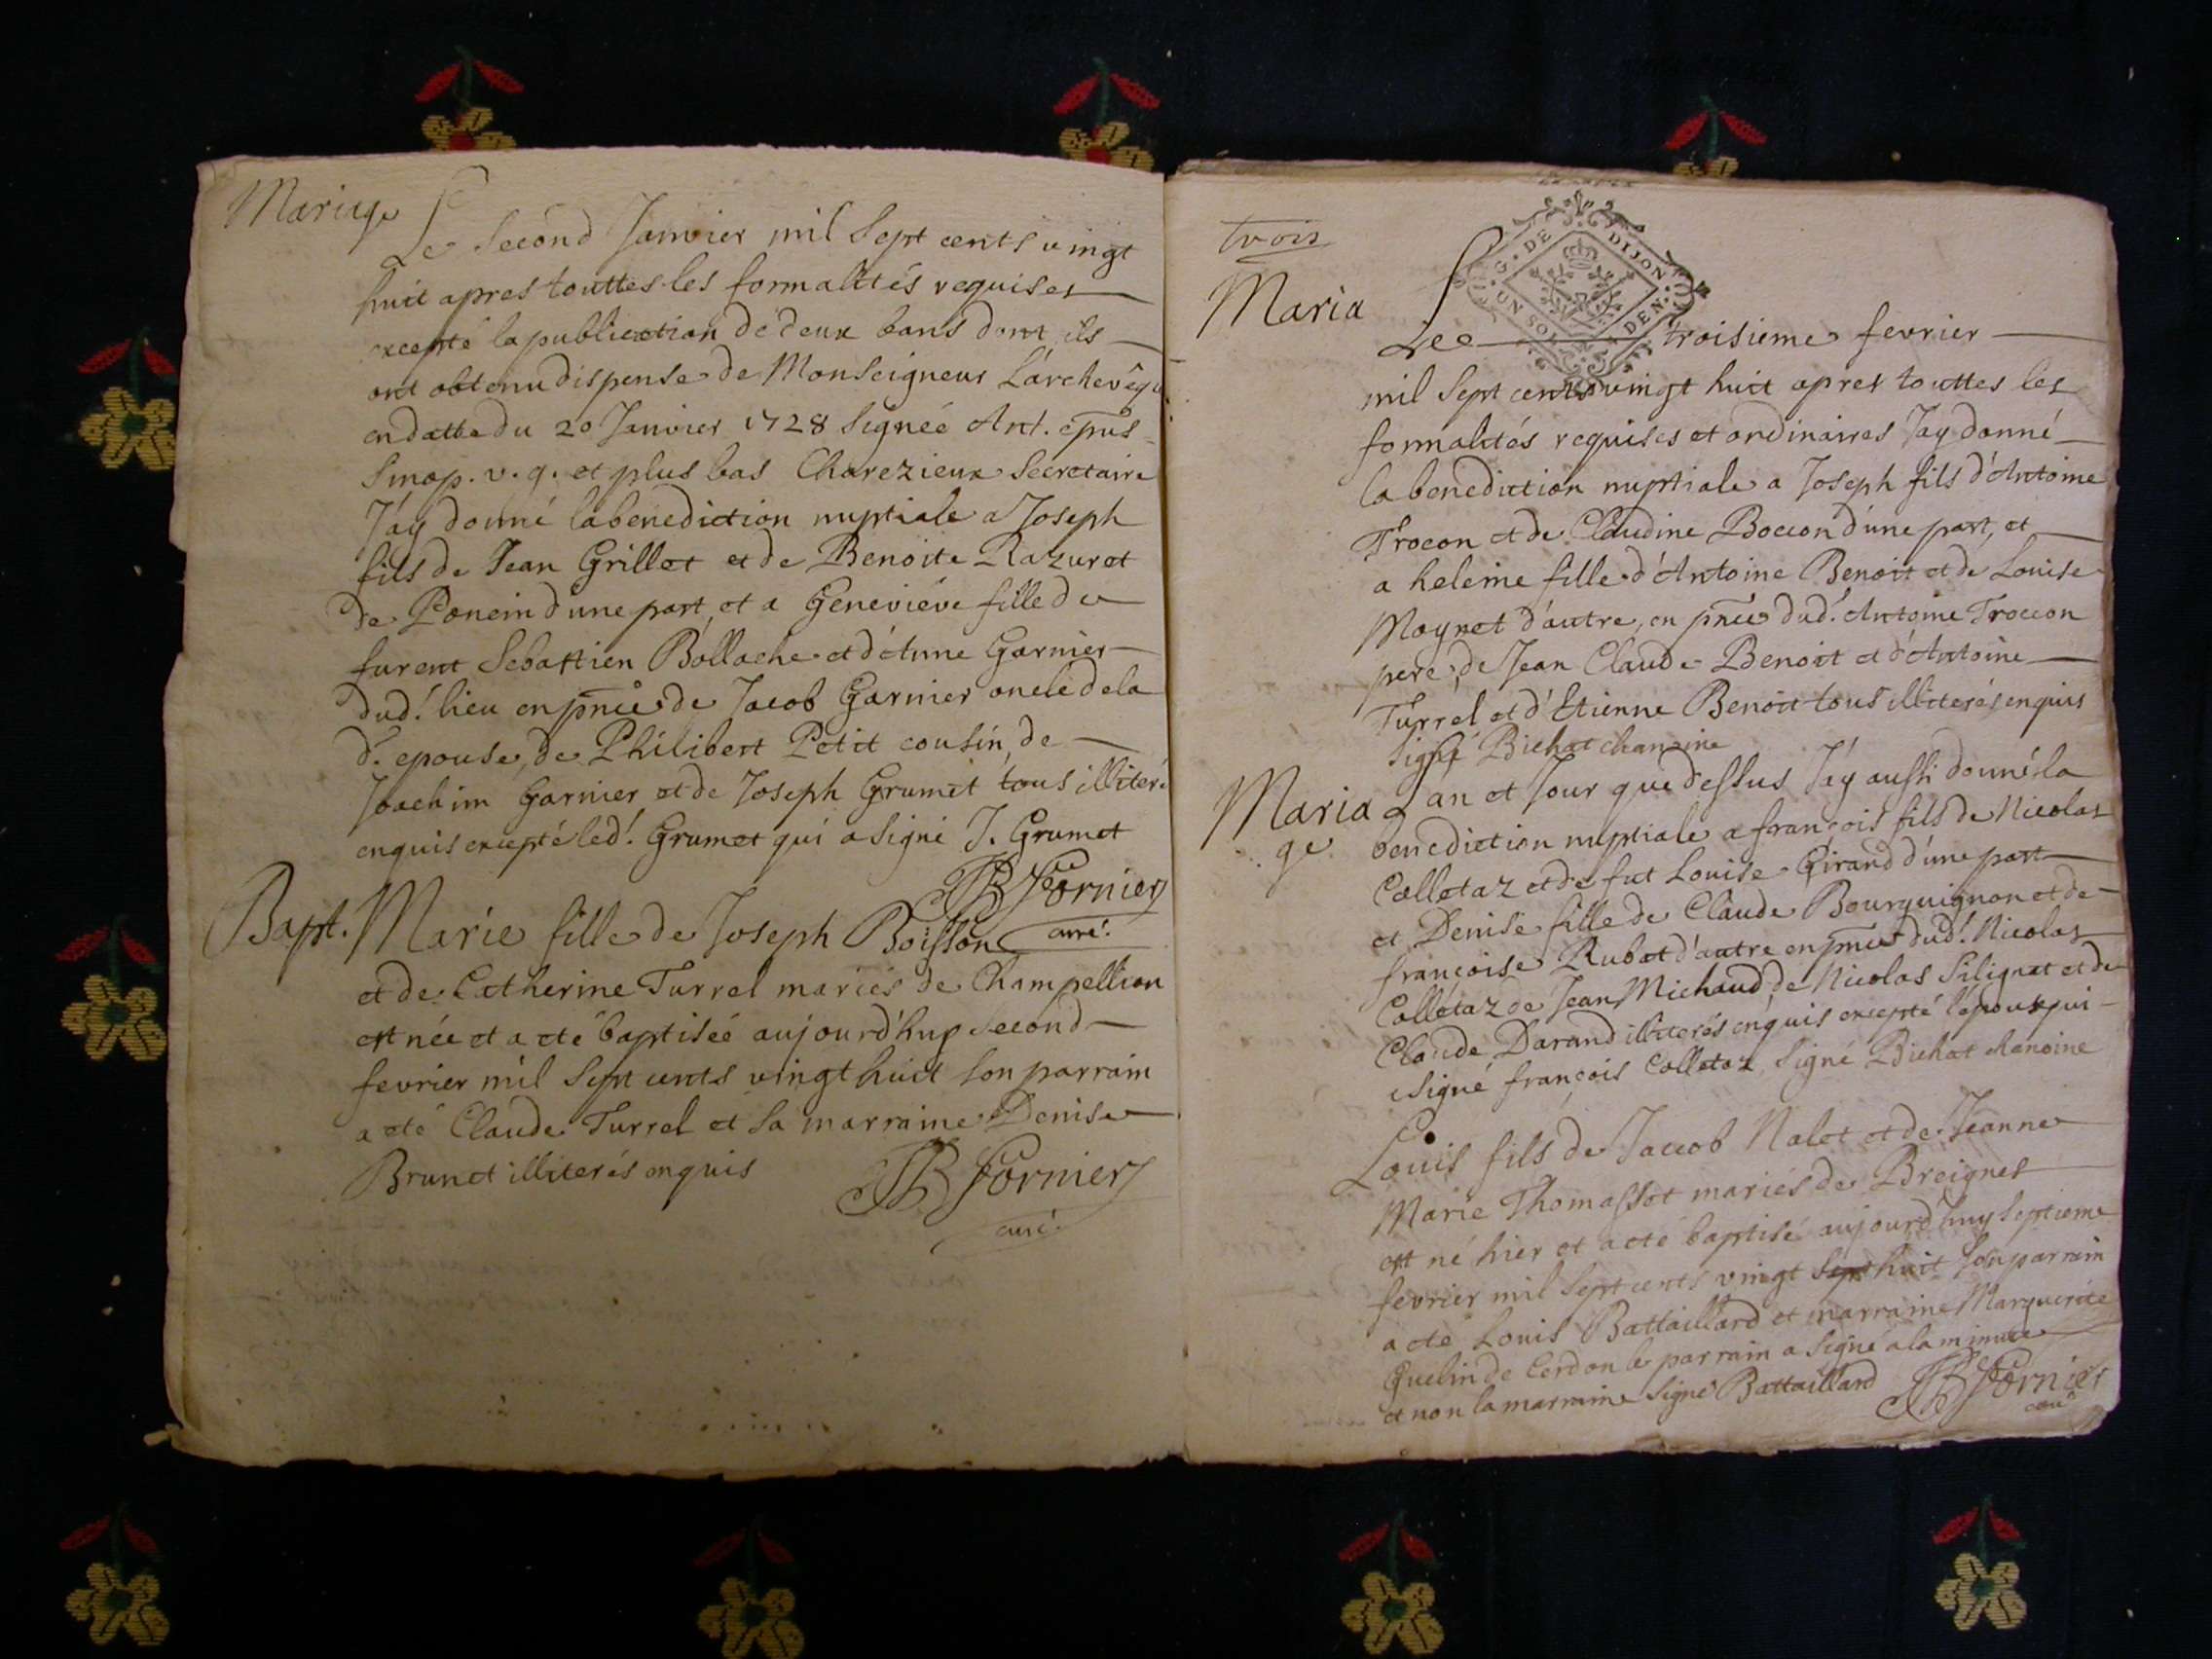 Mariage
Le Second Janvier mil Sept cents vingt
huit apres touttes les formalités requises
excepté la publication de deux bans dont ils
ont obtenu dispense de Monseigneur L'archevêque
en datte du 20 Janvier 1728 Signée Ant. epus
Sinop. v. g. et plus bas Charezieux Secretaire
J'ay donné la benediction nuptiale a Joseph
fils de Jean Grillet et de Benoite Razuret
de Poncin d'une part, et a Geneviéve fille de
furent Sebastien Bollache et d'Anne Garnier
dud! lieu en pnce de Jacob Garnier oncle de la
d. epouse, de Philibert Petit cousin, de
Joachim Garnier et de Joseph Grumet tous illiteré
enquis excepté led! Grumet qui a Signé J. Grumet
JB Fornier
curé.
Bapt. Marie fille de Joseph Boisson
et de Catherine Turrel mariés de Champellion
est née et a eté baptisée aujourd'huy Second
fevrier mil Sept cents vingt huit Son parrain
a eté Claude Turrel et Sa marraine Denise
Brunet illiterés enquis
JB Fornier
curé.
trois
G. DE DIJON
UN SOL DEN.
Maria
Le troisieme fevrier
mil Sept cents vingt huit apres touttes les
formalités requises et ordinaires Jay donné
la benediction nuptiale a Joseph fils d'Antoine
Trocon et de Claudine Boccon d'une part, et
a heleine fille d'Antoine Benoit et de Louise
Moynet d'autre, en pnce dud! Antoine Troccon
pere, de Jean Claude Benoit et d'Antoine
Turrel et d'Etienne Benoit tous illiterés enquis
Signé Bichat chanoine
Maria
ge
L'an et Jour que dessus J'ay aussi donné la
benediction nuptiale a françois fils de Nicolas
Colletaz et de fut Louise Girand d'une part
et Denise fille de Claude Bourguignon et de
françoise Rubat d'autre en pnce dud! Nicolas
Colletaz de Jean Michaud de Nicolas Silignat et de
Claude Darand illiterés enquis excepté l'epoux qui
a Signé françois Colletaz, Signé Bichat chanoine
Louis fils de Jaccob Nalet et de Jeanne
Marie Thomassot mariés de Breignes
est né hier et a eté baptisé aujourd'huy Septieme
fevrier mil Sept cents vingt Sept huit Son parrain
a eté Louis Battaillard et marraine Marguerite
Guelin de Cerdon le parrain a Signé a la minute
et non la marraine Signé Battaillard JB Fornier
curé